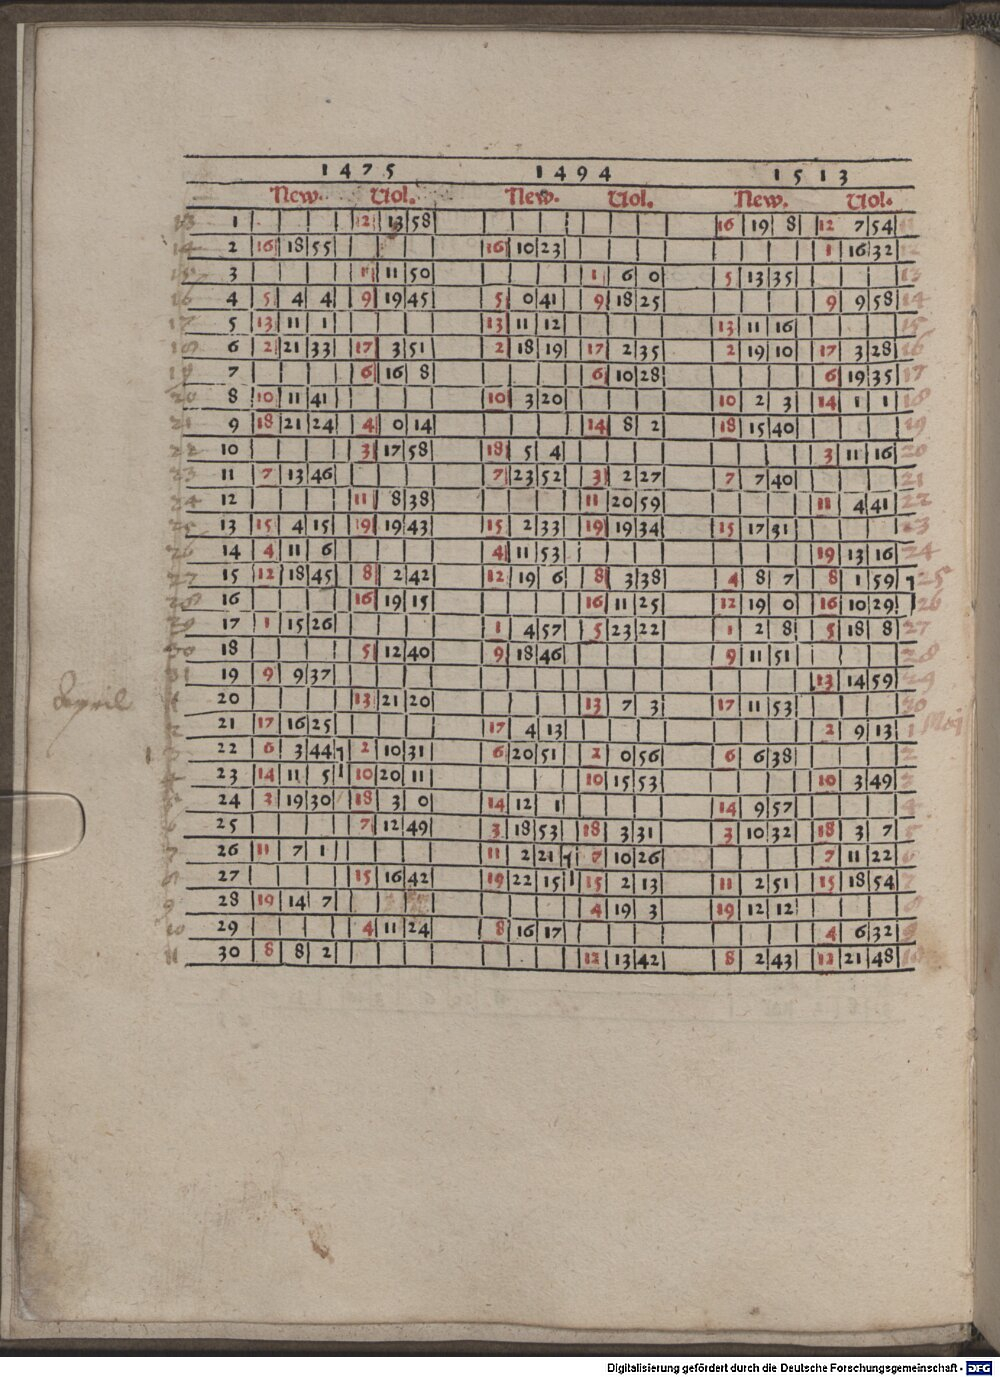 1475 1494 1513
New. Vol. New. Vol. New. Vol.
1 12 13 58 16 19 8 12 7 54
2 16 18 55 16 10 23 1 16 32 12
3 1 11 50 1 6 0 5 13 35 13
4 5 4 4 9 19 45 5 0 41 9 18 25 9 9 58 14
5 13 11 1 13 11 12 13 11 16 15
6 2 21 33 17 3 51 2 18 19 17 2 35 2 19 10 17 3 28 16
7 6 16 8 6 10 28 6 19 35 17
8 10 11 41 10 3 20 10 2 3 14 1 1 18
9 18 21 24 4 0 14 14 8 2 18 15 40 19
10 3 17 58 18 5 4 3 11 16 20
11 7 13 46 7 23 52 3 2 27 7 7 40 21
12 11 8 38 11 20 59 11 4 41 22
13 15 4 15 19 19 43 15 2 33 19 19 34 15 17 31 23
14 4 11 6 4 11 53 19 13 16 24
15 12 18 45 8 2 42 12 19 6 8 3 38 4 8 7 8 1 59 25
16 16 19 15 16 11 25 12 19 0 16 10 29 26
17 1 15 26 1 4 57 5 23 22 1 2 8 5 18 8 27
18 5 12 40 9 18 46 9 11 51 28
19 9 9 37 13 14 59 29
April
20 13 21 20 13 7 3 17 11 53 30
21 17 16 25 17 4 13 2 9 13 1 Maij
22 6 3 44 2 10 31 6 20 51 2 0 56 6 6 38 2
23 14 11 5 10 20 11 10 15 53 10 3 49 3
24 3 19 30 18 3 0 14 12 1 14 9 57 4
25 7 12 49 3 18 53 18 3 31 3 10 32 18 3 7 5
26 11 7 1 11 2 21 7 10 26 7 11 22 6
27 15 16 42 19 22 15 15 2 13 11 2 51 15 18 54 7
28 19 14 7 4 19 3 19 12 12 8
29 4 11 24 8 16 17 4 6 32 9
30 8 8 2 12 13 42 8 2 43 12 21 48 10
Digitalisierung gefördert durch die Deutsche Forschungsgemeinschaft - DFG